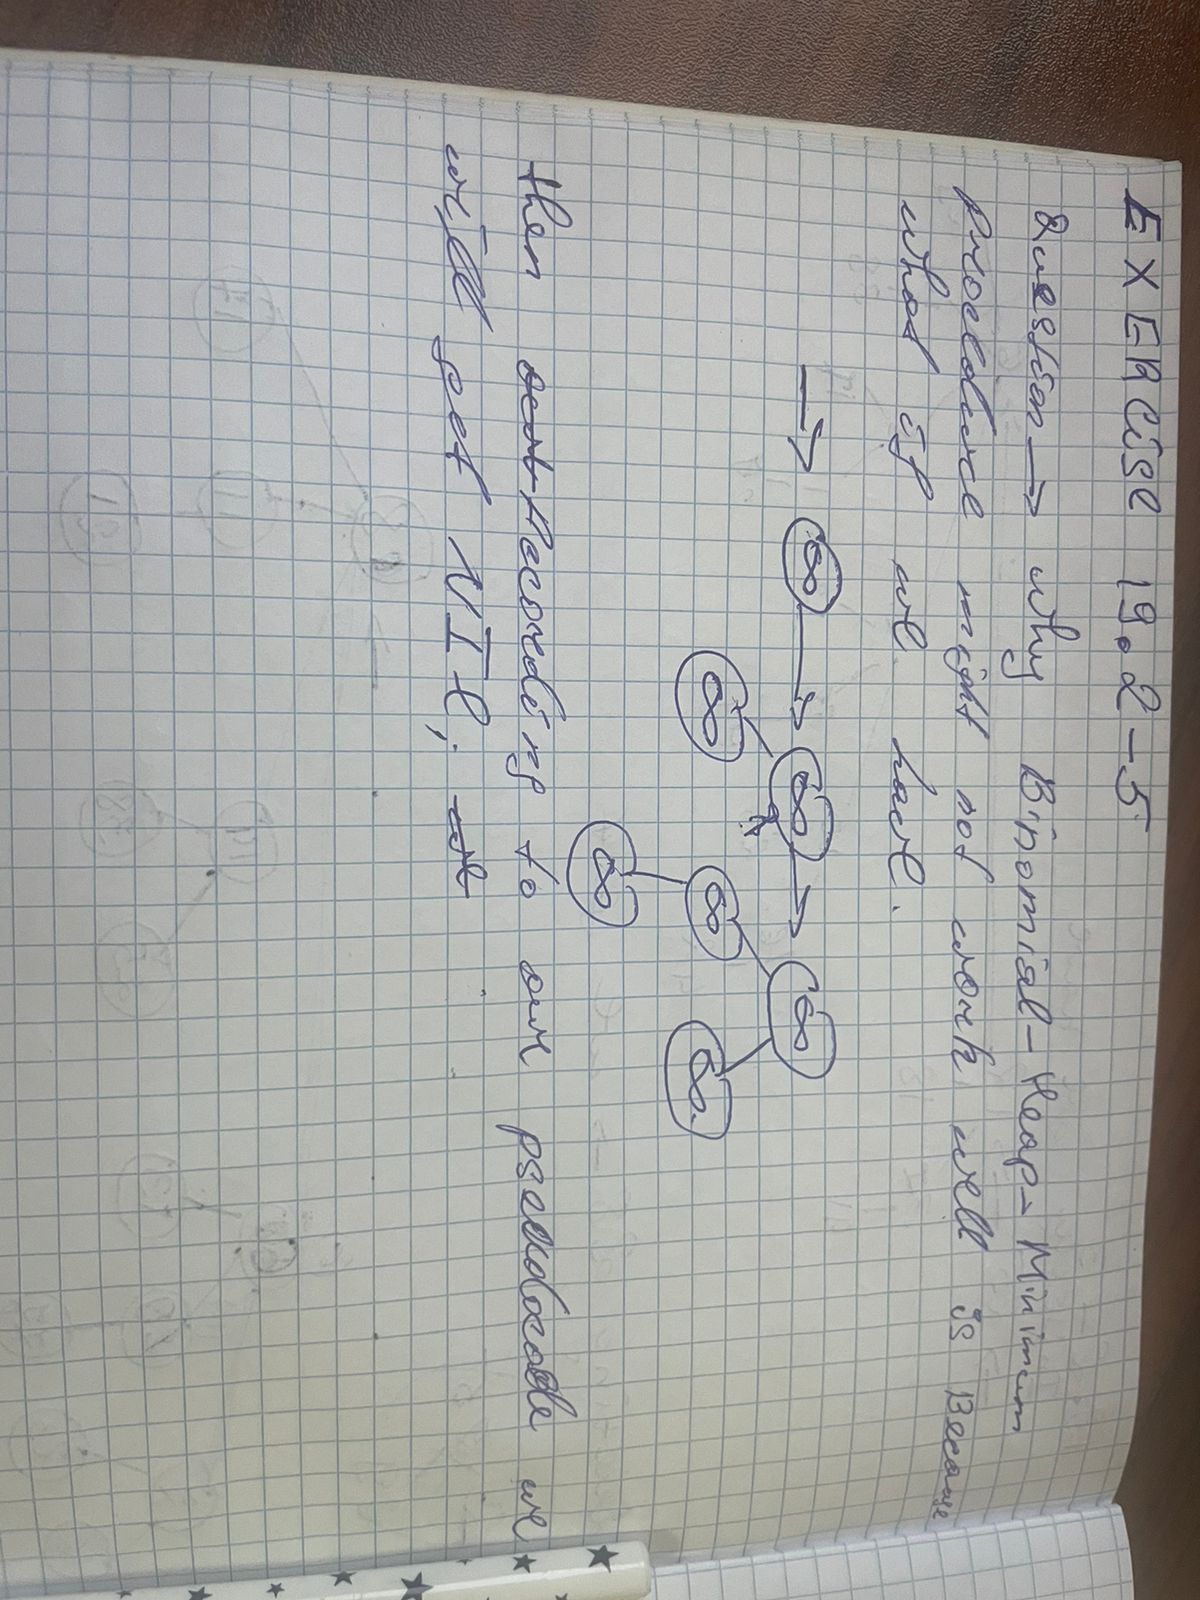 EXERCISE 19.2-5
Question → why Binomial-Heap-Minimum
Procedure might not work well is Because
what if we have.
→ ∞ → ∞ → ∞
∞ ∞ ∞
∞
then according to our pseudocode we
will get NIL;